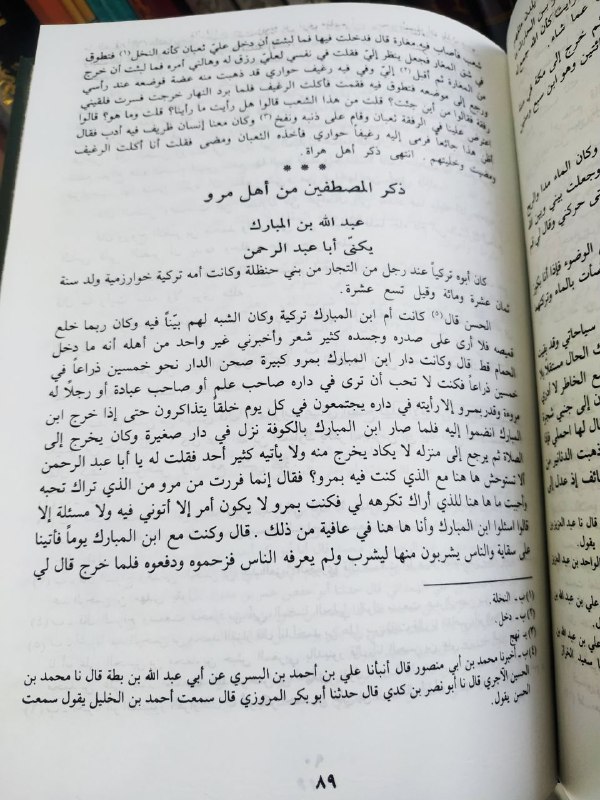 شعب فأصاب فيه مغارة قال فدخلت فيها فما لبثت أن دخل عليّ ثعبان كأنه النخل(١) فتطوق
في شق المغار فجعل ينظر إليّ فقلت في نفسي لعلي رزق له وهالتي أمره فما لبثت أن خرج
من المغارة ثم أقبل(٢) إليّ وفي فيه رغيف حواري قد ذهبت منه عضة فوضعه عند رأسي
ورجع إلى موضعه فتطوق فيه فقمت فأكلت الرغيف فلما برد النهار خرجت فسرت فلقيني
رفقة فقالوا من أين جئت؟ قلت من هذا الشعب قالوا هل رأيت ما رأينا؟ قلت وما هو؟ قالوا
اعترض علينا في الرفقة ثعبان وقام على ذنبه ونفخ(٣) وكان معنا إنسان ظريف فيه أدب فقال
أظن هذا جائعاً فرمى إليه رغيفاً حواري فأخذه الثعبان ومضى فقلت أنا أكلت الرغيف
ومضيت وخليتهم . انتهى ذكر أهل هراة.
* * *
ذكر المصطفين من أهل مرو
عبد الله بن المبارك
يكنّى أبا عبد الرحمن
كان أبوه تركياً عند رجل من التجار من بني حنظلة وكانت أمه تركية خوارزمية ولد سنة
ثمان عشرة ومائة وقيل تسع عشرة .
الحسن قال(٥) كانت أم ابن المبارك تركية وكان الشبه لهم بيّناً فيه وكان ربما خلع
قميصه فلا أرى على صدره وجسده كثير شعر وأخبرني غير واحد من أهله أنه ما دخل
الحمام قط قال وكانت دار ابن المبارك بمرو كبيرة صحن الدار نحو خمسين ذراعاً في
خمسين ذراعاً فكنت لا تحب أن ترى في داره صاحب علم أو صاحب عبادة أو رجلًا له
مروءة وقدر بمرو إلا رأيته في داره يجتمعون في كل يوم خلقاً يتذاكرون حتى إذا خرج ابن
المبارك انضموا إليه فلما صار ابن المبارك بالكوفة نزل في دار صغيرة وكان يخرج إلى
الصلاة ثم يرجع إلى منزله لا يكاد يخرج منه ولا يأتيه كثير أحد فقلت له يا أبا عبد الرحمن
ألا تستوحش ها هنا مع الذي كنت فيه بمرو؟ فقال إنما فررت من مرو من الذي تراك تحبه
وأحببت ما ها هنا للذي أراك تكرهه لي فكنت بمرو لا يكون أمر إلا أتوني فيه ولا مسئلة إلا
قالوا اسئلوا ابن المبارك وأنا ها هنا في عافية من ذلك . قال وكنت مع ابن المبارك يوماً فأتينا
على سقاية والناس يشربون منها ليشرب ولم يعرفه الناس فزحموه ودفعوه فلما خرج قال لي
(١) ب ـ النخلة .
(٢) ب ـ دخل .
(٣) ب ـ نهج
(٤) ب ـ أخبرنا محمد بن أبي منصور قال أنبأنا علي بن أحمد بن البسري عن أبي عبد الله بن بطة قال نا محمد بن
الحسين الآجري قال نا أبو نصر بن كدي قال حدثنا أبو بكر المروزي قال سمعت أحمد بن الخليل يقول سمعت
الحسن يقول .
٨٩